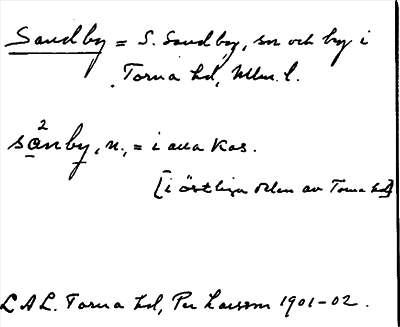 Sandby = S. Sandby, sn och by i
Torna hd, Mlm. l.
sa²nby, n., = i alla kas.
[i östliga delen av Torna hd]
L A L. Torna hd, Per Larsson 1901-02.